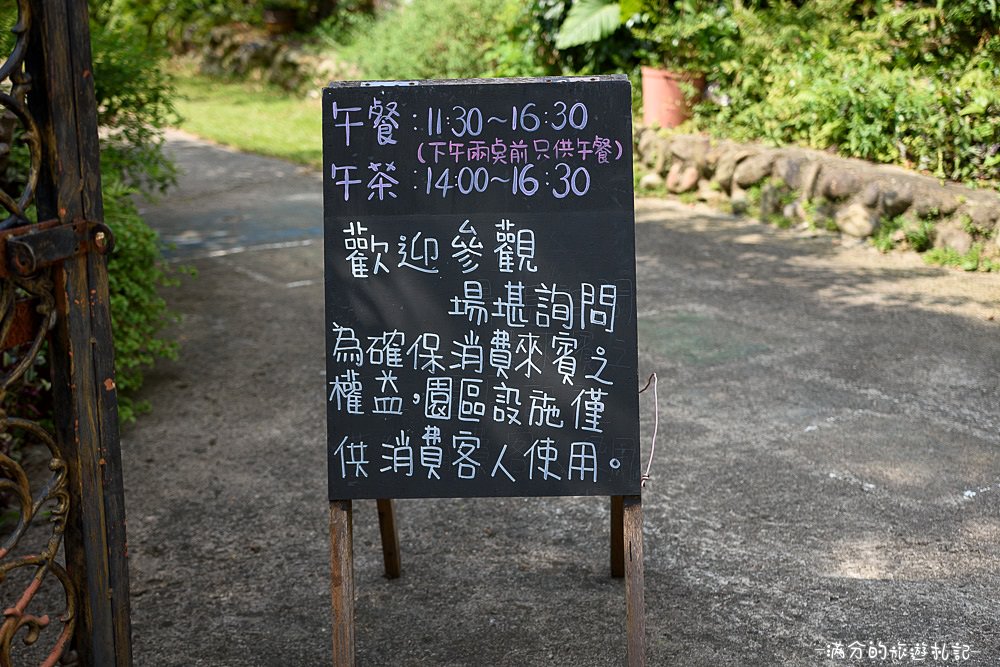 午餐：11:30～16:30
（下午兩點前只供午餐）
午茶：14:00～16:30
歡迎參觀
場堪詢問
為確保消費來賓之
權益，園區設施僅
供消費客人使用。
滿分的旅遊札記